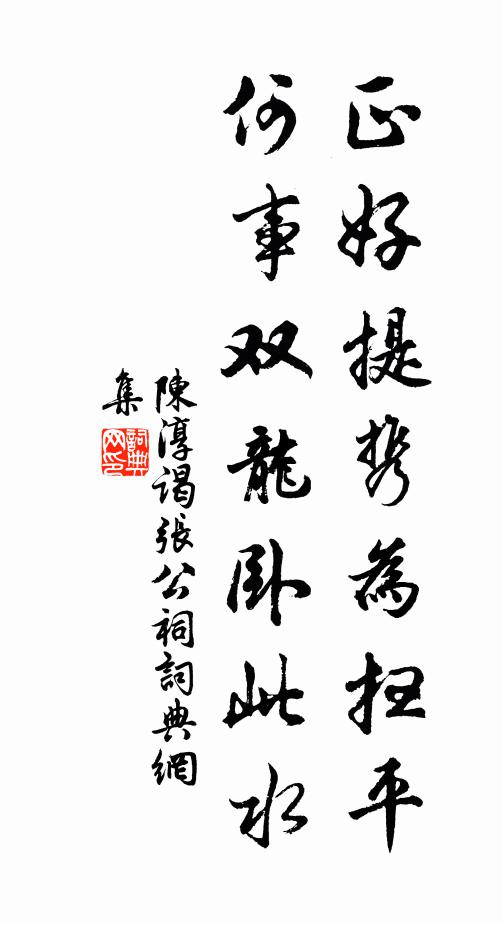 正好提携為扫平
何事双龍卧此水
陳淳谒張公祠詞典網
集
詞典
网印